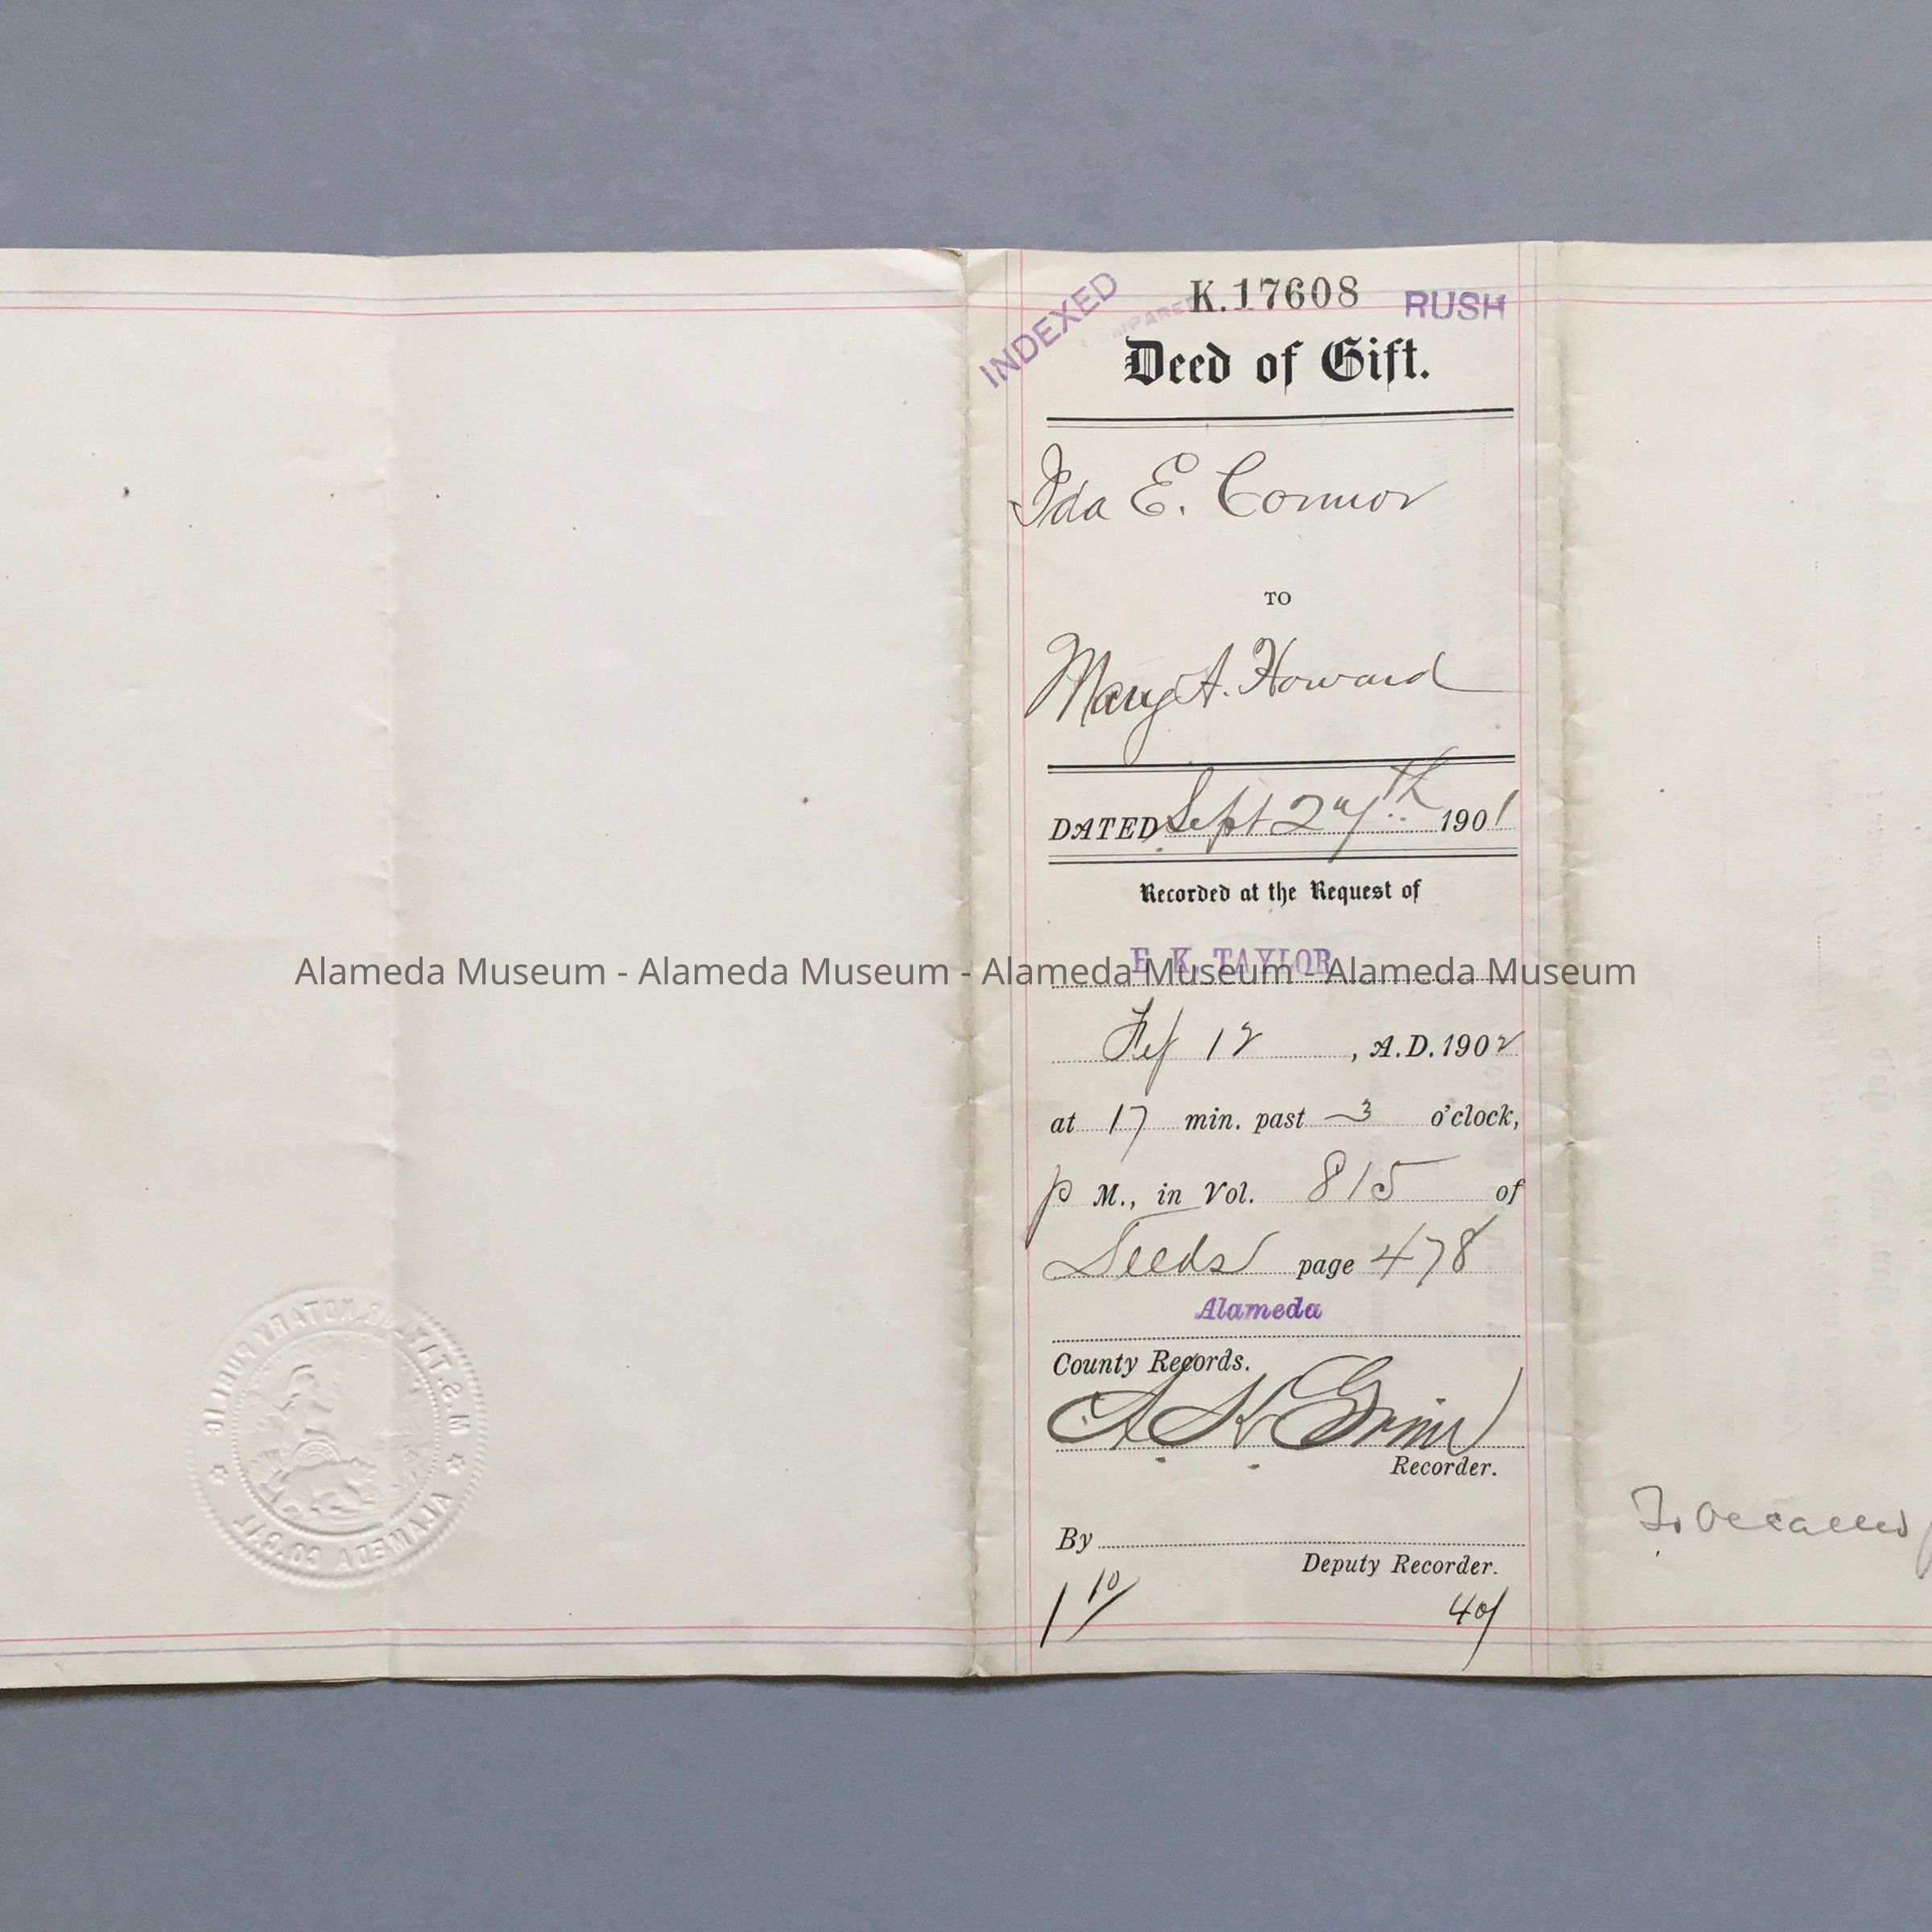 K.17608
RUSH
INDEXED
COMPARED
Deed of Gift.
Ida E. Connor
TO
Mary A. Howard
DATED Sept 27th 1901
Recorded at the Request of
E. K. TAYLOR
Alameda Museum - Alameda Museum - Alameda Museum - Alameda Museum
Feb 12, A.D. 1902
at 17 min. past 3 o'clock,
P M., in Vol. 815 of
Deeds page 478
Alameda
County Records.
Recorder.
By
Deputy Recorder.
1 10/
40/
M.S. TAYLOR, NOTARY PUBLIC
ALAMEDA CO. CAL